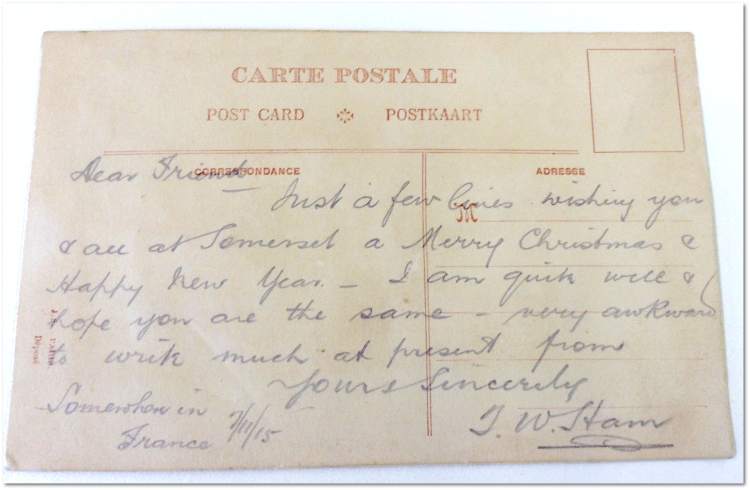 CARTE POSTALE
POST CARD POSTKAART
CORRESPONDANCE ADRESSE
Dear Friend
Just a few lines wishing you
& all at Somerset a Merry Christmas &
Happy New Year – I am quite well &
hope you are the same – very awkward
to write much at present from
Yours Sincerely
T. W. Ham
Somewhere in
France 7/11/15
M
PARIS
Déposé